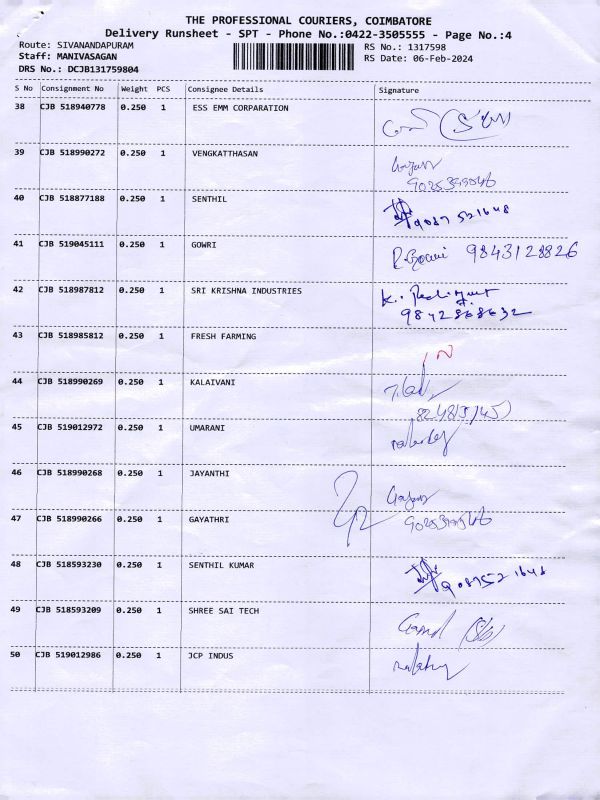 THE PROFESSIONAL COURIERS, COIMBATORE
Delivery Runsheet - SPT - Phone No.:0422-3505555 - Page No.:4
Route: SIVANANDAPURAM
RS No.: 1317598
Staff: MANIVASAGAN
RS Date: 06-Feb-2024
DRS No.: DCJB131759804
S No Consignment No Weight PCS Consignee Details Signature
38 CJB 518940778 0.250 1 ESS EMM CORPARATION
39 CJB 518990272 0.250 1 VENGKATTHASAN
40 CJB 518877188 0.250 1 SENTHIL
9087521648
41 CJB 519045111 0.250 1 GOWRI
R. Gowri 9843128826
42 CJB 518987812 0.250 1 SRI KRISHNA INDUSTRIES
9842868632
43 CJB 518985812 0.250 1 FRESH FARMING
44 CJB 518990269 0.250 1 KALAIVANI
45 CJB 519012972 0.250 1 UMARANI
46 CJB 518990268 0.250 1 JAYANTHI
47 CJB 518990266 0.250 1 GAYATHRI
48 CJB 518593230 0.250 1 SENTHIL KUMAR
9087521648
49 CJB 518593209 0.250 1 SHREE SAI TECH
50 CJB 519012986 0.250 1 JCP INDUS